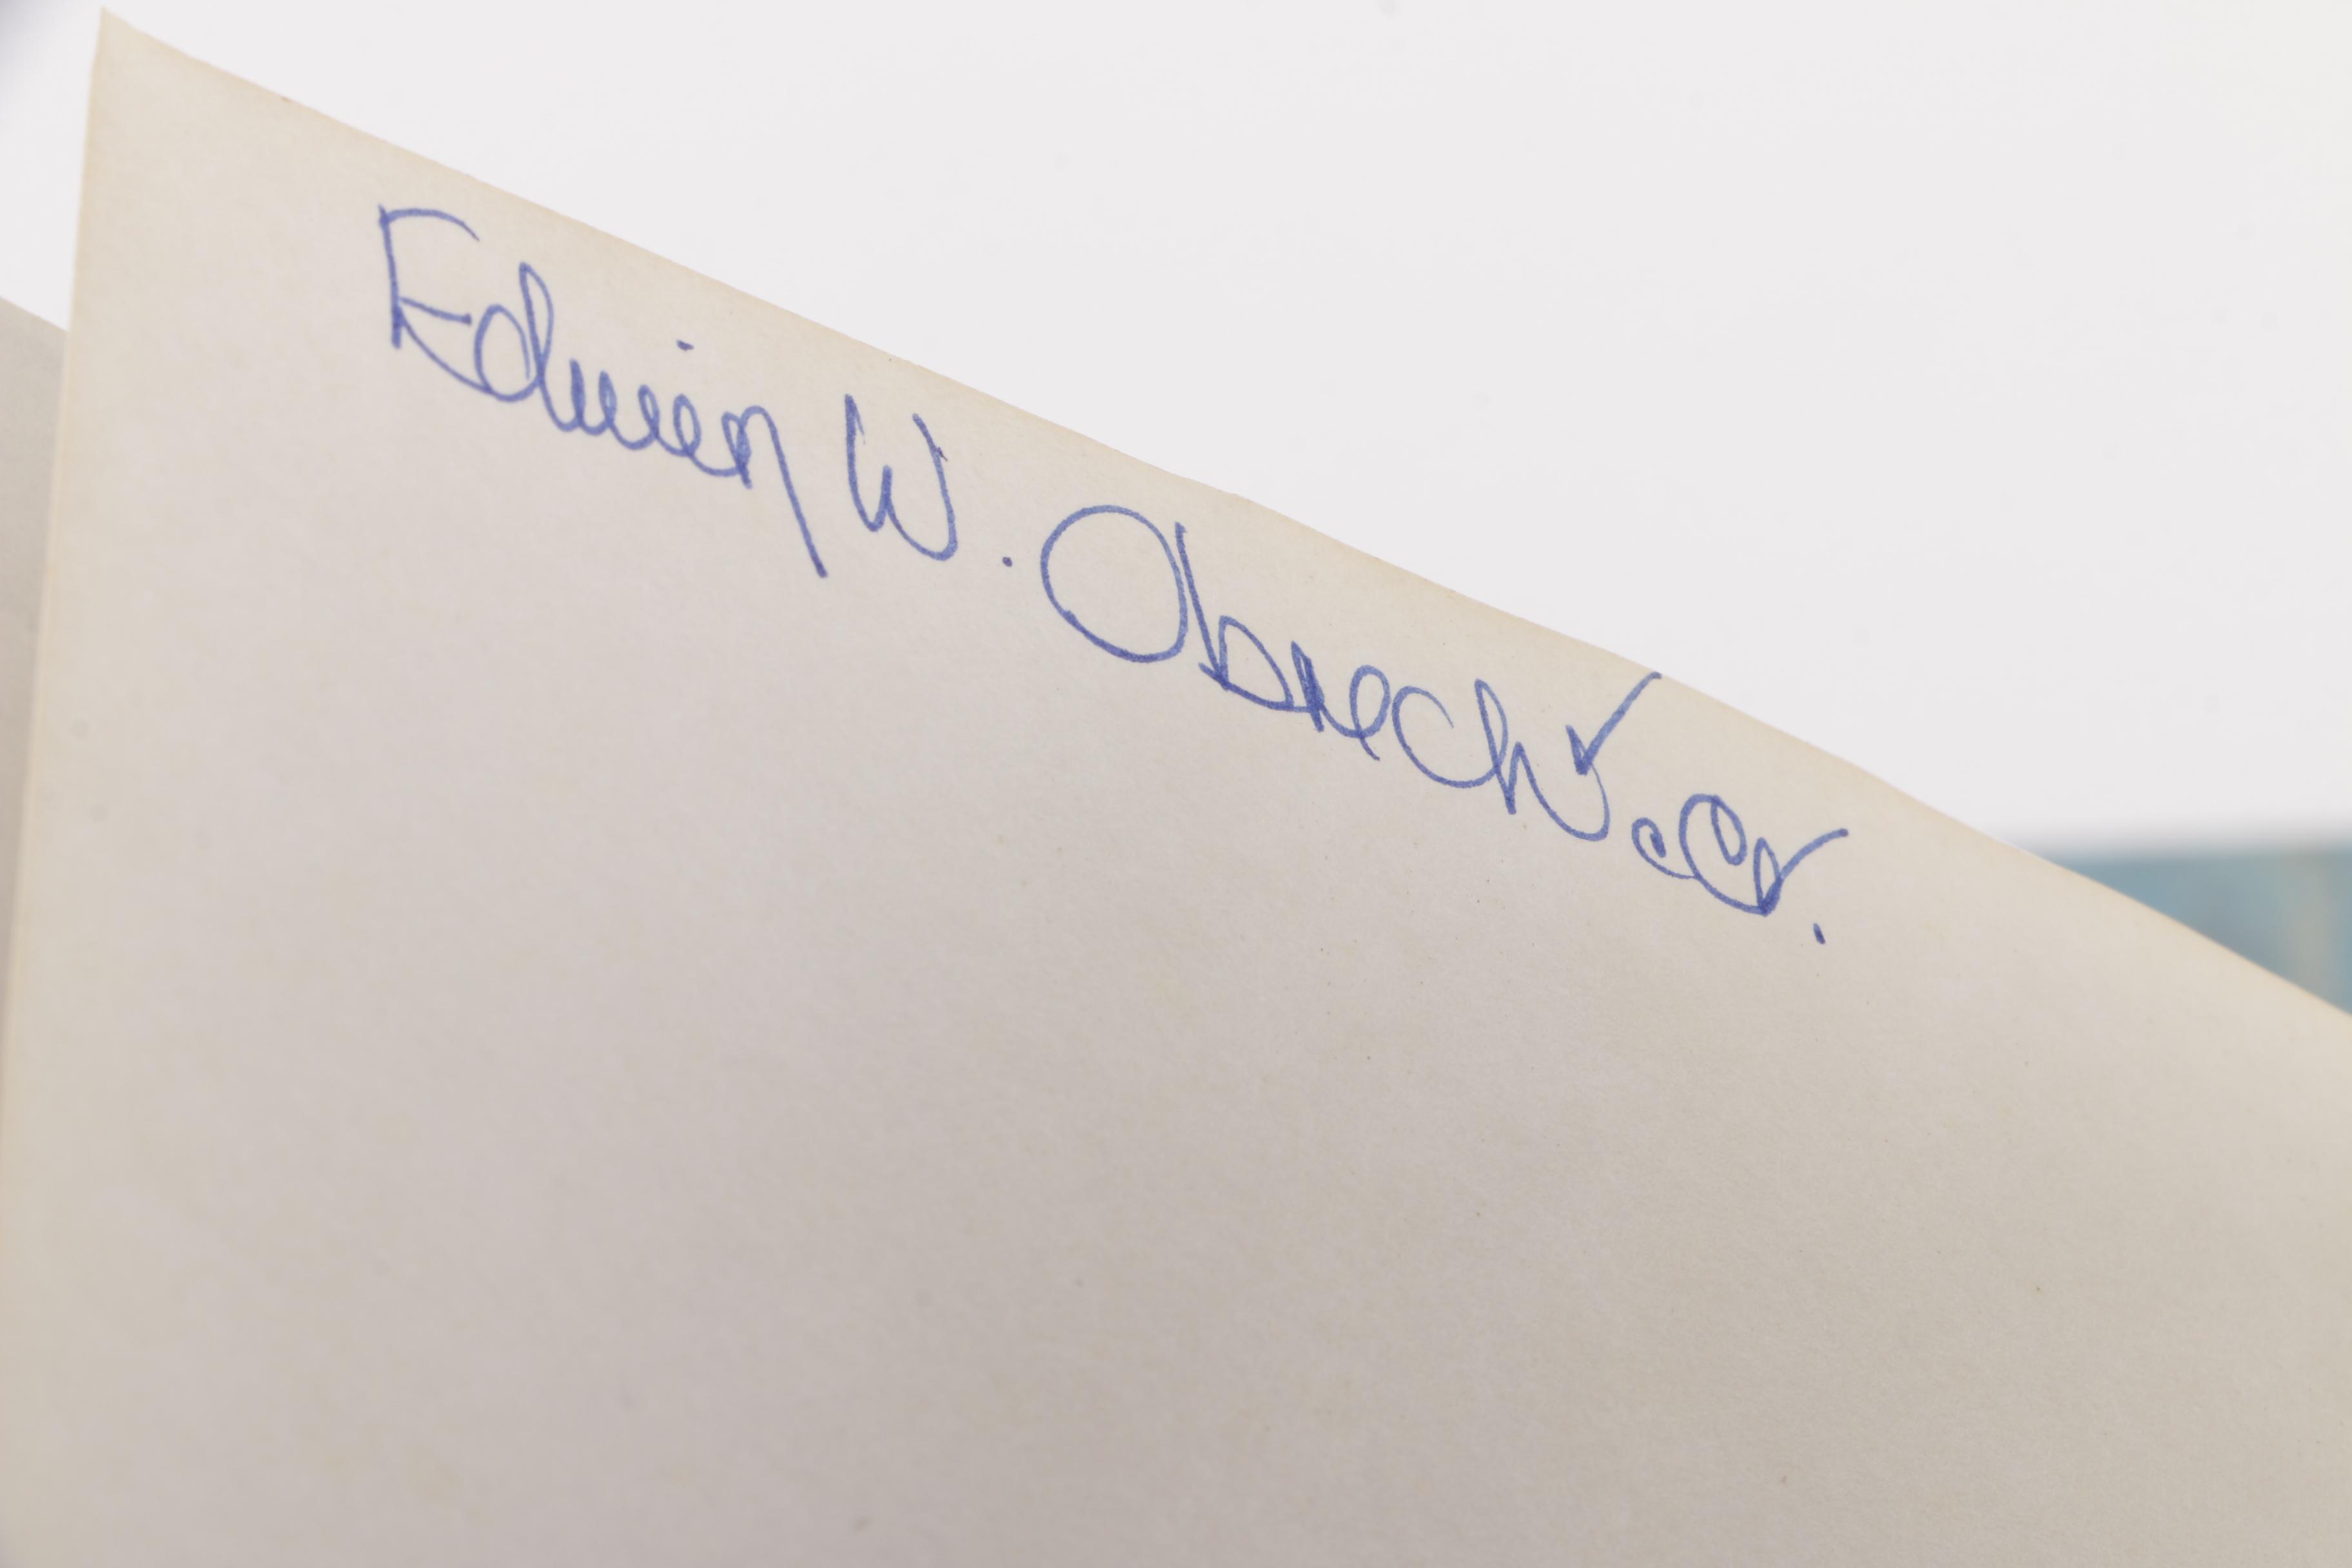 Edwin W. Obrecht Jr.